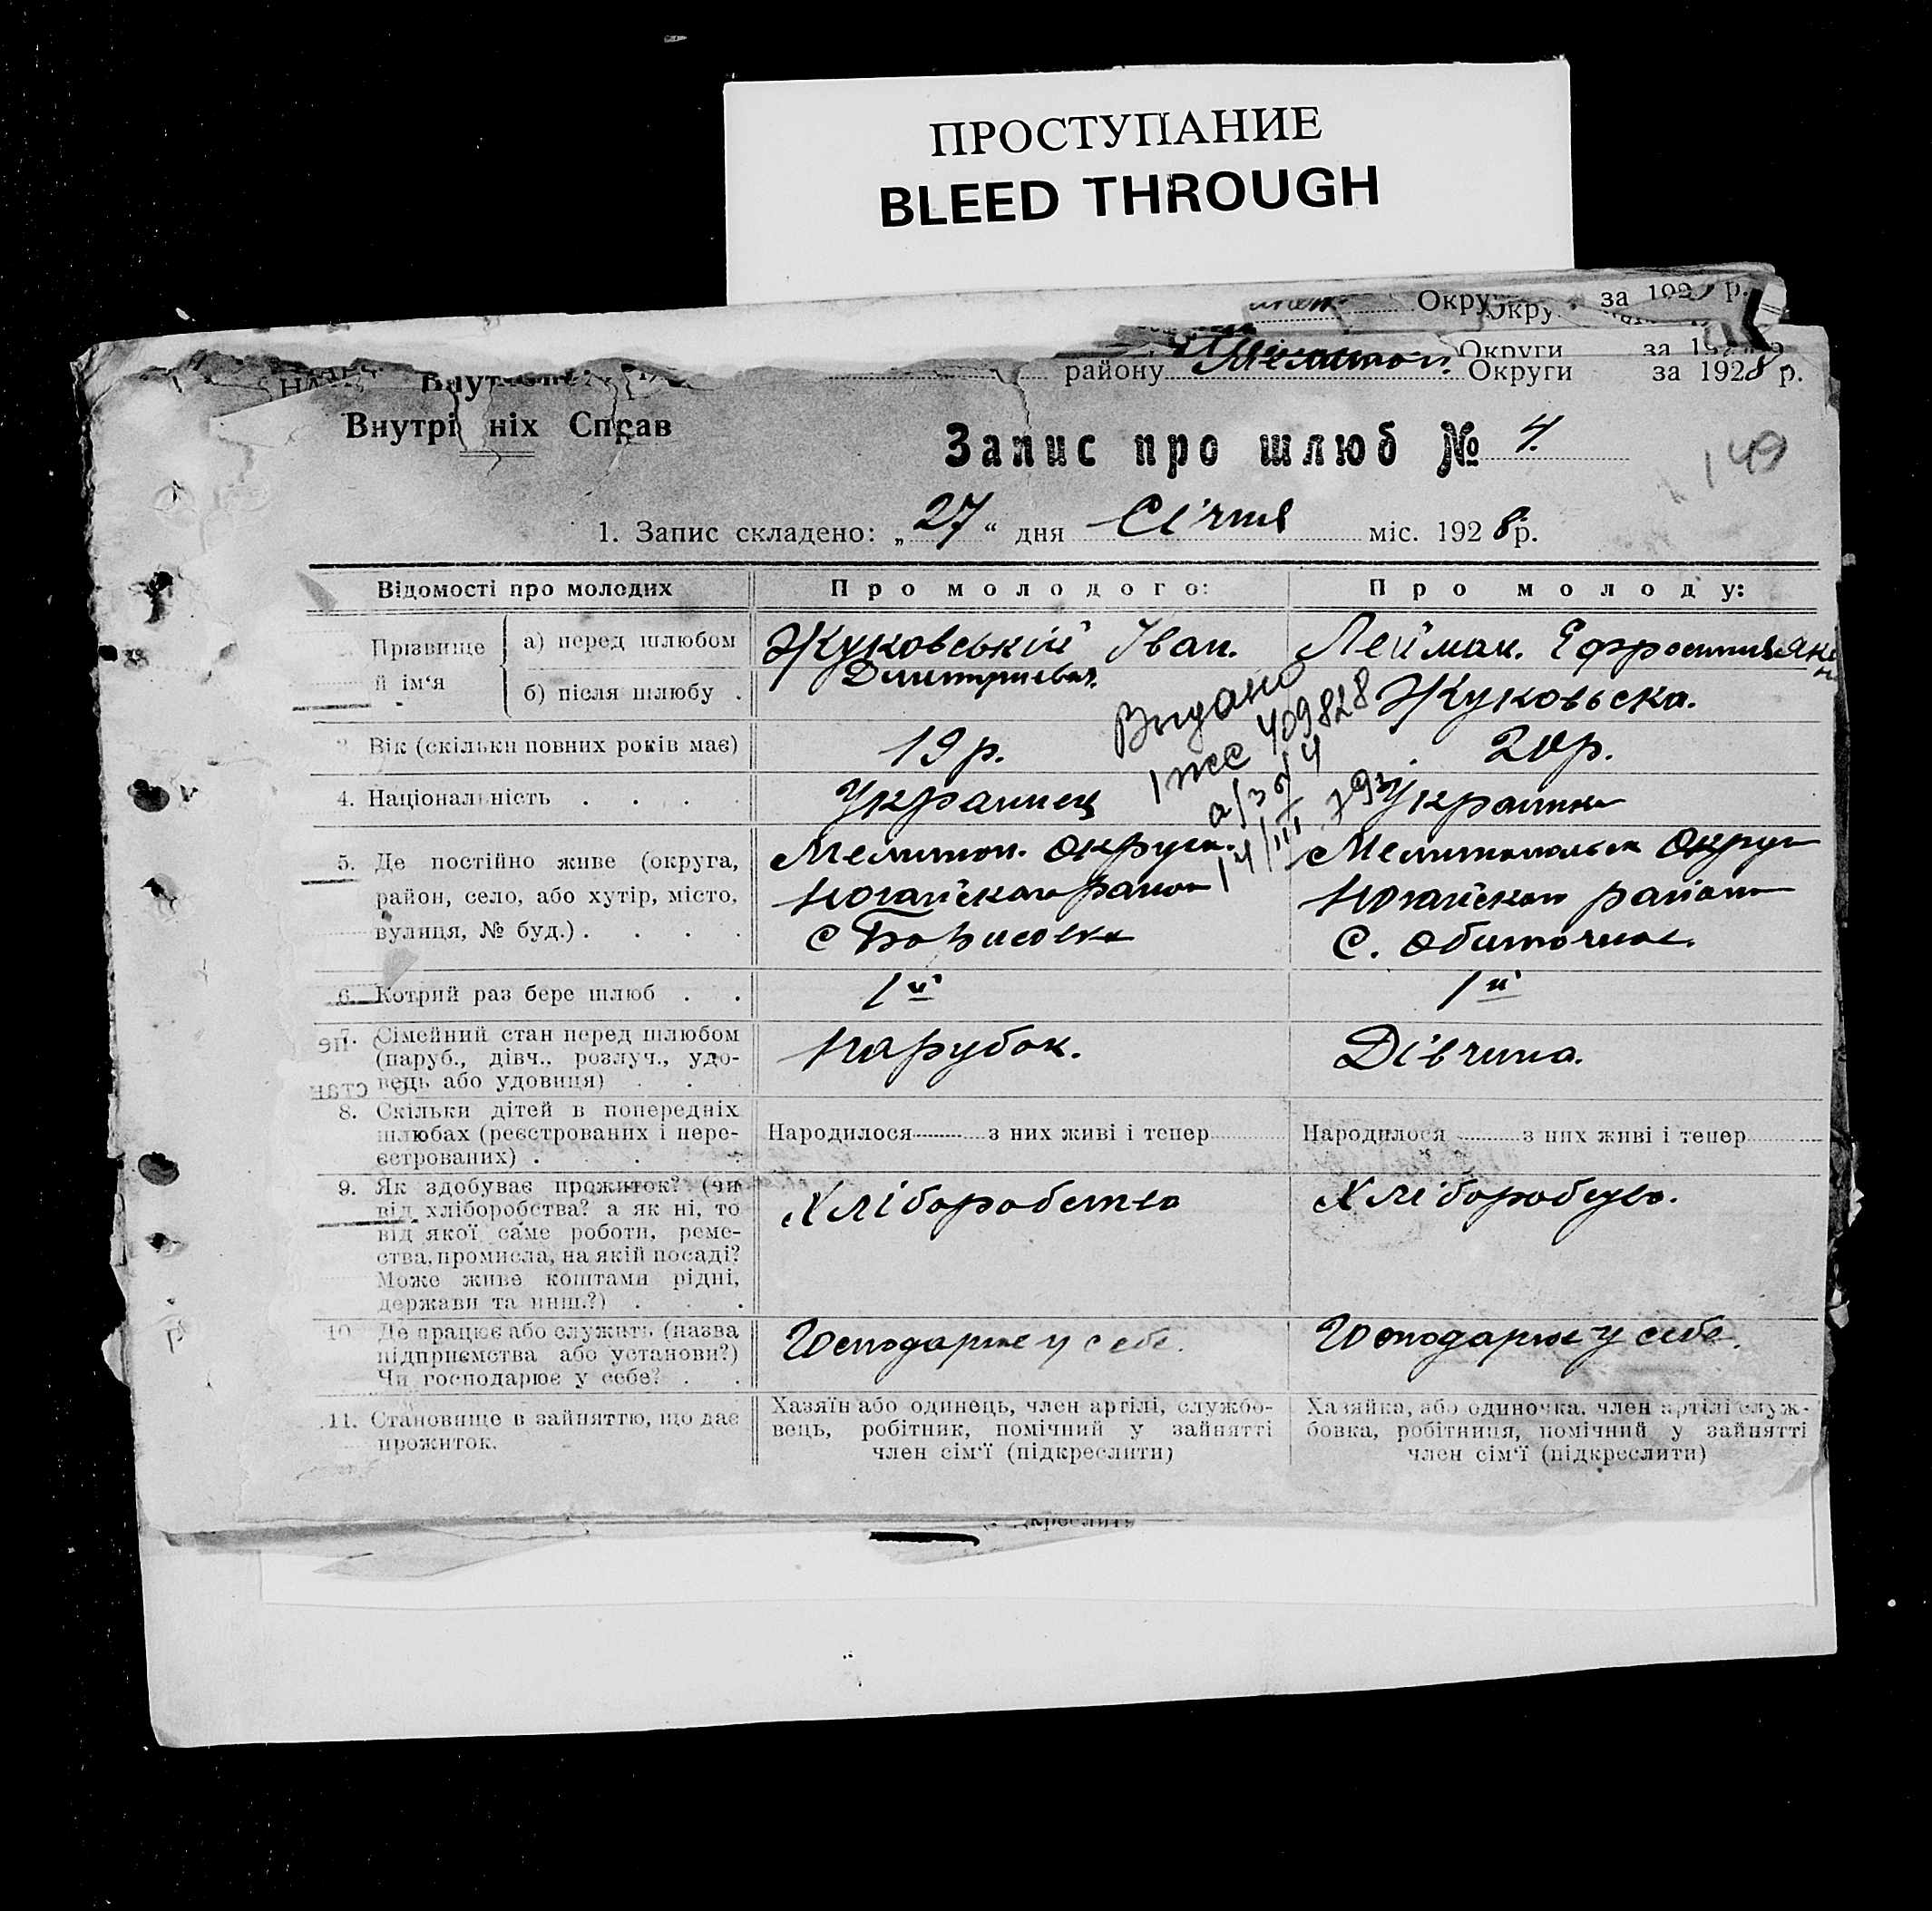 ПРОСТУПАНИЕ
BLEED THROUGH
Округи за 192 р.
Округи
району Мелитоп. Округи за 1928 р.
Внутрішніх Справ
Запис про шлюб № 4.
149
1. Запис складено: „27“ дня Січня міс. 1928 р.
Відомості про молодих Про молодого: Про молоду:
Прізвище й ім‘я { а) перед шлюбом Жуковській Іван. Дмитриевич Лейман. Ефросиния
б) після шлюбу . Жуковьска.
Видано
409828
14/III
Вік (скільки повних років має) 19 р. 20 р.
4. Національність . . . . Украинец Украинка
5. Де постійно живе (округа, Мелитоп. округи. Мелитопольск Округ
район, село, або хутір, місто, Ногайского район Ногайского района
вулиця, № буд.) . . . . с Борисовка С. Обиточное.
6. Котрий раз бере шлюб . . 1й 1й
7. Сімейний стан перед шлюбом Парубок. Дівчина.
(паруб., дівч., розлуч., удо-
вець або удовиця) . . .
8. Скільки дітей в попередніх
шлюбах (реєстрованих і нере- Народилося з них живі і тепер Народилося з них живі і тепер
єстрованих) . . . .
9. Як здобуває прожиток? (чи Хліборобство Хліборобство.
від хліборобства? а як ні, то
від якої саме роботи, реме-
ства, промисла, на якій посаді?
Може живе коштами рідні,
держави та инш.?) . . .
10. Де працює або служить (назва Господарює у себе. Господарює у себе.
підприємства або установи?)
Чи господарює у себе? . .
11. Становище в зайняттю, що дає Хазяїн або одинець, член артілі, службо- Хазяйка, або одиночка, член артілі служ-
прожиток. вець, робітник, помічний у зайнятті бовка, робітниця, помічний у зайнятті
член сім‘ї (підкреслити) член сім‘ї (підкреслити)